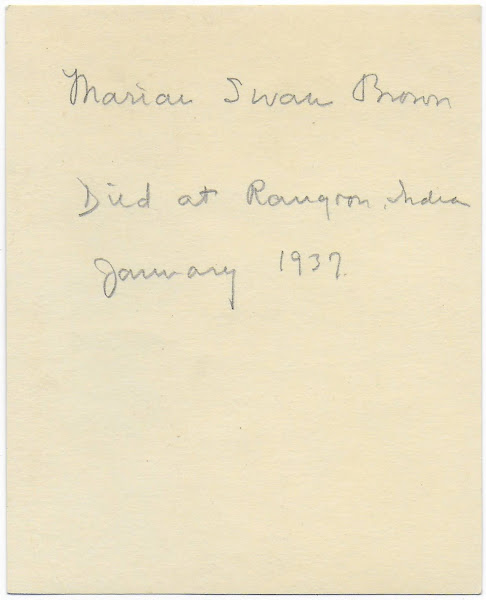 Marian Swan Brown
Died at Rangoon, India
January 1937.